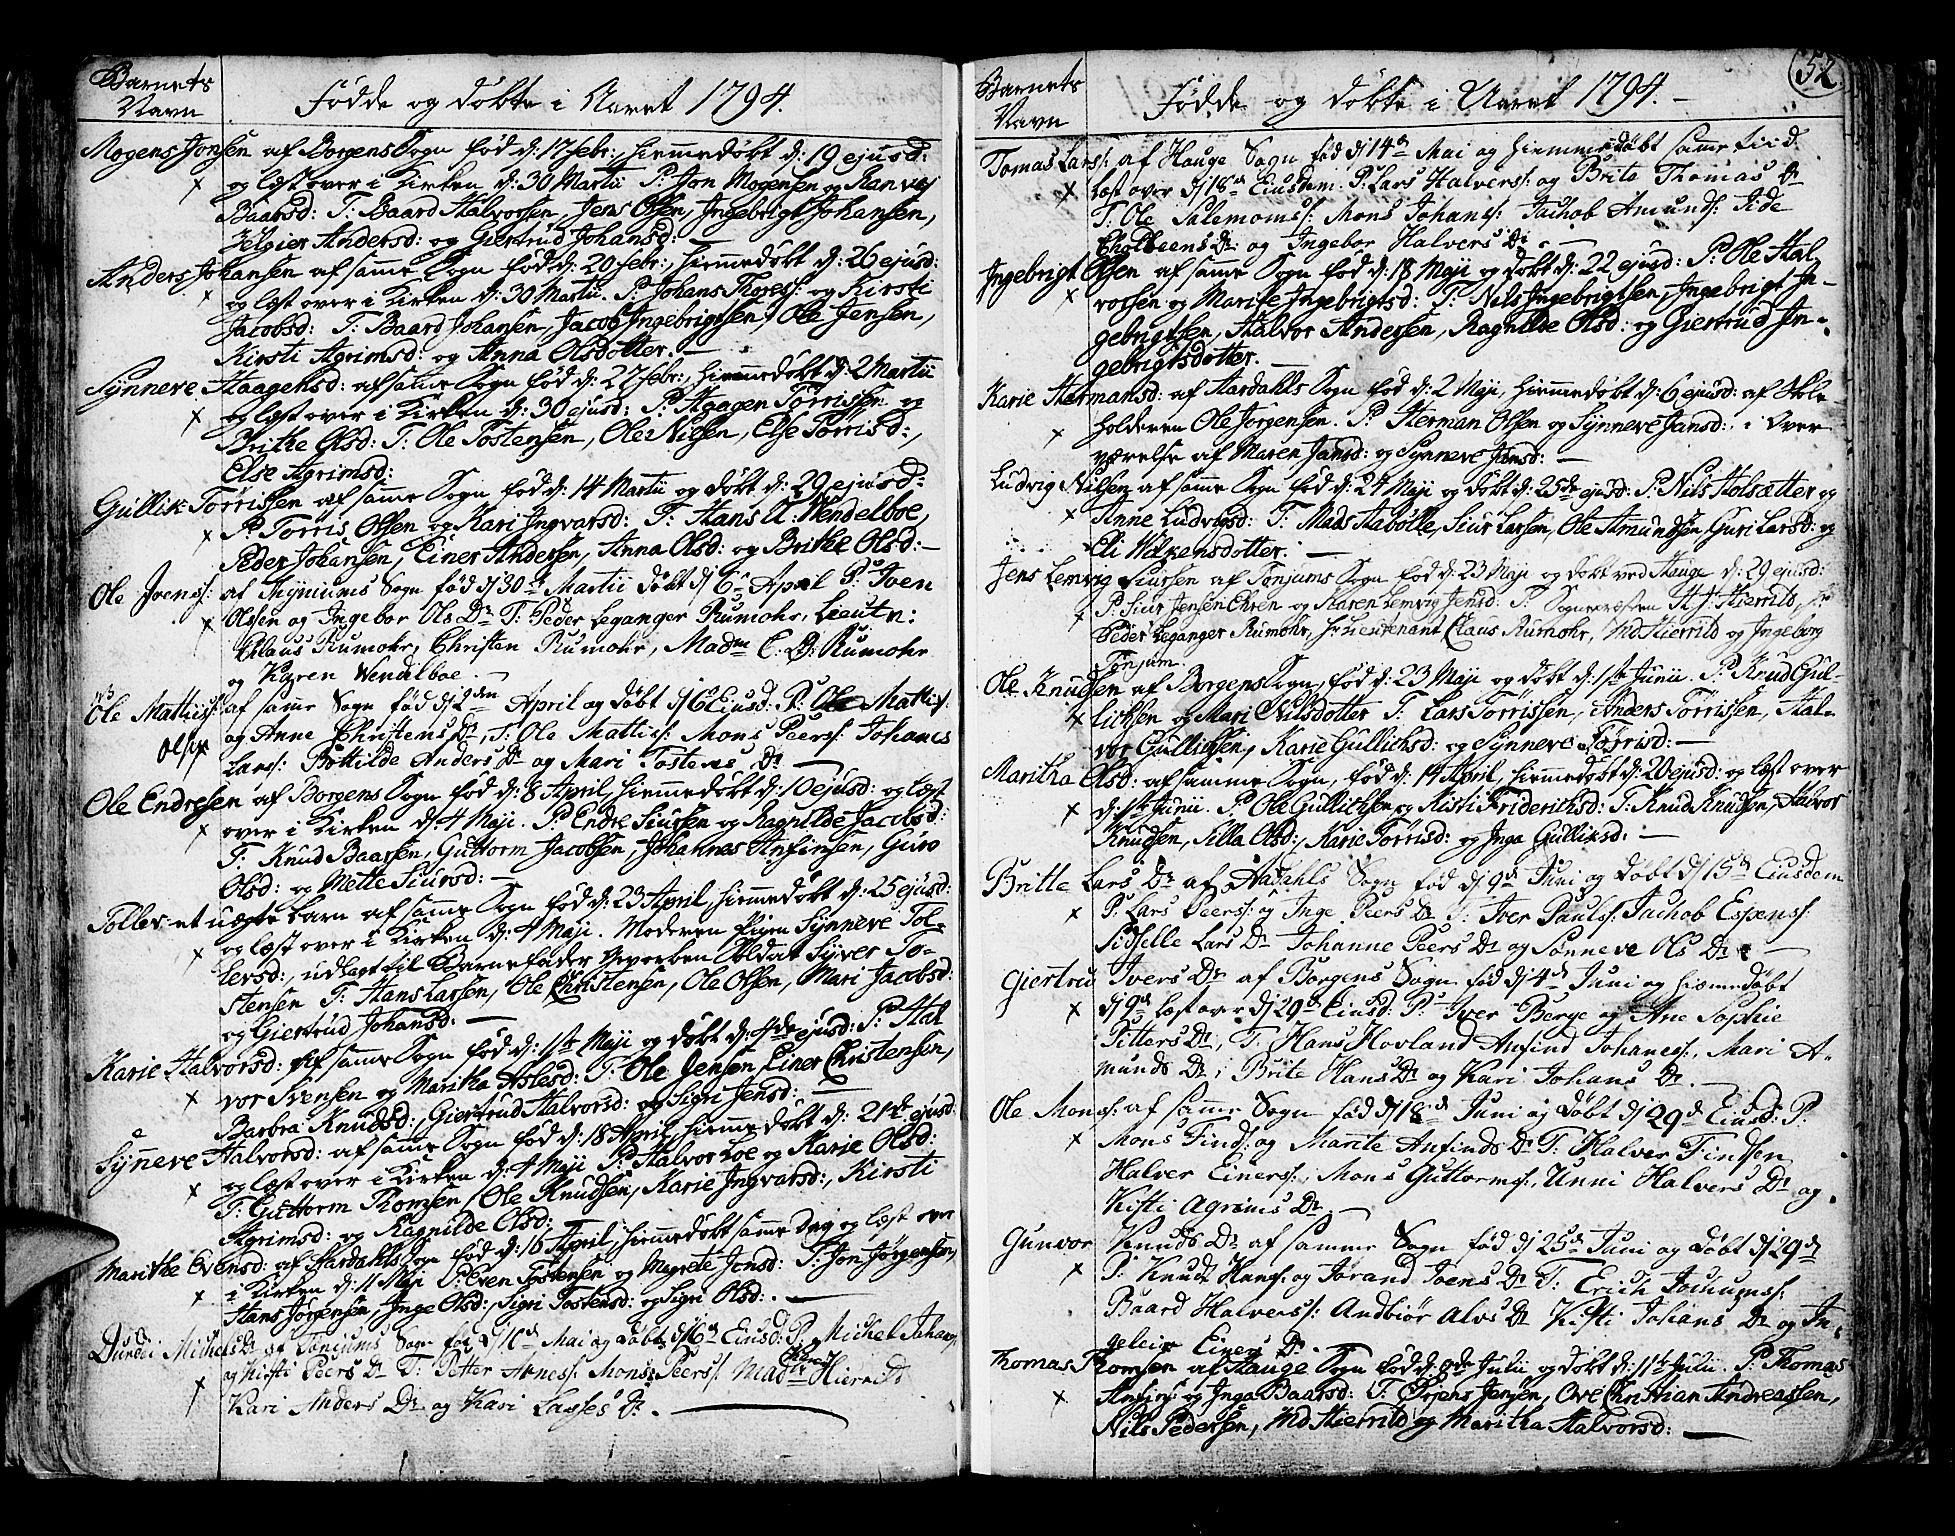 Barnets
Navn
Fødde og døbte i Aaret 1794.
Mogens Jonsen af Borgens Sogn fød d: 17 febr:, hiemmedøbt d: 19 ejusd:
og læst over i Kirken d: 30 Martii P: Jon Mogensen og Ranvej
Baarsd: T: Baard Halvorsen, Jens Olsen, Ingebrigt Johansen,
Andersd: og Giertrud Johansd: —
Anders Johansen af samme Sogn fød d: 20 febr:, hiemmedøbt d: 26 ejusd:
og læst over i Kirken d: 30 Martii. P: Johans Thoress: og Kirsti
Jacobsd: T: Baard Johansen, Jacob Ingebrigtsen, Ole Jensen,
Kirsti Agrimsd: og Anna Olsdotter. —
Synneve Haagensd: af samme Sogn fød d: 27 febr:, hiemmedøbt d: 2 Martii
og læst over i Kirken d: 30 ejusd: P: Haagen Torrissen og
Brithe Olsd: T: Ole Tostensen, Ole Nilsen, Else Torrisd:,
Else Agrimsd:
Gullik Torrissen af samme Sogn fød d: 14 Martii og døbt d: 29 ejusd:
P: Torris Olsen og Kari Ingvarsd: T: Hans A: Wendelboe,
Peder Johansen, Einer Andersen, Anna Olsd: og Brithe Olsd: —
Ole Joens: af Sogn fød d 30 Martii døbt d 6 April P: Joen
Olssen og Ingebor Ols Dr T: Peder Leganger Rumohr, Lieutn:
Claus Rumohr, Christen Rumohr, Madm C. B: Rumohr
og Karen Wendelboe. —
Ole Mattiss: af samme Sogn fød d 2den April og døbt d 6 Eiusd: P: Ole Mattis:
og Anne Christens Dr, T: Ole Mattiss: Mons Peers: Johanes
Lars: Bottilde Anders Dr og Mari Tostens Dr —
Ole Endresen af Borgens Sogn fød d: 8 April, hiemmedøbt d: 10 ejusd: og læst
over i Kirken d: 4 Maji. P: Endre Siursen og Ragnilde Jacobsd:
T: Knud Baarsen, Guttorm Jacobsen, Johannes Anfinsen, Guro
Olsd: og Mette Siursd: —
Tollev et uægte barn af samme Sogn fød d: 23 April, hiemmedøbt d: 25 ejusd:
og læst over i Kirken d: 4 Maji. Moderen Pigen Synneve Tol-
levsd:, udlagt til Barnefader Soldat Syver To-
stensen T: Hans Larsen, Ole Christensen, Ole Olsen, Mari Jacobsd:
og Giertrud Johansd: —
Karie Halvorsd: af samme Sogn fød d: 1ste Maji og døbt d: 4de ejusd: P: Hal-
vor Svensen og Maritha Aslesd: T: Ole Jensen Einer Christensen,
Barbra Knudsd:, Giertrud Halvorsd: og Sigri Jensd: —
Synneve Halvorsd: af samme Sogn fød d: 18 April, hiemmedøbt d: 21de ejusd:
og læst over i Kirken d: 4 Maji P: Halvor Loe og Karie Olsd:
T: Guttorm Thomsen, Ole Knudsen, Karie Ingvarsd:, Kirsti
Agrimsd: og Ragnilde Olsd:
Marithe Evensd: af Aardahls Sogn fød d: 16 April, hiemmedøbt samme dag og læst over
i Kirken d: 11 Maji P: Even Tostensen og Magrete Jonsd: T: Jon Jørgensen,
Hans Jørgensen, Inge Olsd:, Sigri Tostensd: og Sigri Olsd: —
Michels Dr af Tonjums Sogn fød d Mai og døbt d 16 Eiusd: P: Michel Johans:
og Kisti Peers Dr T: Petter Arness: Mons Peers: Madm Hierrild
Kari Anders Dr og Kari Lasses Dr. —
52
Barnets
Navn
Fødde og døbte i Aaret 1794. —
Tomas Lars: af Hauge Sogn fød d 14 Mai og hiemmedøbt samme tiid
læst over d 18 Eiusdem. P: Lars Halvers: og Brite Thomas Dr
T: Ole Salemoms: Mons Johans: Jachob Amunds: Side
Dr og Ingebor Halvers Dr. —
Ingebrigt Olsen af samme Sogn fød d: 18 Maji og døbt d: 22 ejusd: P: Ole Hal-
vorsen og Marite Ingebrigtsd: T: Nils Ingebrigtsen, Ingebrigt In-
gebrigtsen, Halvor Andersen, Ragnilde Olsd: og Giertrud In-
gebrigtsdotter. —
Karie Hermansd: af Aardahls Sogn fød d: 2 Maji, hiemmedøbt d: 6 ejusd: af Skole
holderen Ole Jorgensen. P: Herman Olsen og Synneve Jansd: i Over
værelse af Maren Jansd: og Synneve Jansd: —
Ludvig Nilsen af samme Sogn fød d: 24 Maji og døbt d: 25de ejusd: P: Nils Holsætter og
Anne Ludvigsd: T: Mads Habolle, Siur Larsen, Ole Amundsen, Guri Larsd: og
Eli Wilkensdotter. —
Jens Lemvig Siursen af Tonjums Sogn fød d: 23 Maji og døbt ved Hauge d: 29 ejusd:
P: Siur Jensen Ehren og Karen Lemvig Jensd: T: Sognepræsten H: J: Hierrild,
Peder Leganger Rumohr, Hr Lieutenant Claus Rumohr, Md Hierrild og Ingeborg
Tonjum.
Ole Knudsen af Borgens Sogn, fød d: 23 Maji og døbt d: 1ste Junii. P: Knud Gul-
lichsen og Mari Nilsdotter T: Lars Torrissen, Anders Torrissen, Hal-
vor Gullichsen, Karie Gullichsd: og Synneve Torrisd: —
Maritha Olsd: af samme Sogn, fød d: 14 April, hiemmedøbt d: 20 ejusd: og læst over
d: 1ste Junii. P: Ole Gullichsen og Kisti Friderichsd: T: Knud Knudsen, Halvor
Knudsen, Silla Olsd:, Karie Torrisd: og Inga Gulliksd: —
Britte Lars Dr af Aadahls Sogn fød d 9de Juni og døbt d 15de Eiusdem
P: Lars Peers: og Inge Peers Dr T: Iver Pauls: Jachob Espens:
Sidselle Lars Dr Johanne Peers Dr og Sønneve Ols Dr —
Giertru Ivers Dr af Borgens Sogn fød d 4de Juni og hiemedøbt
d 9de læst over d 29de Eiusd: P: Iver Berge og Ane Sophie
Pitters Dr, T: Hans Hovland Anfind Johaness: Mari A-
munds Dr, Brite Hans Dr og Kari Johans Dr. —
Ole Mons: af samme Sogn fød d 18de Juni og døbt d 29de Eiusd: P:
Mons Finds: og Marite Anfinds Dr T: Halver Findsen
Halver Einers: Mons Guttorms:, Unni Halvers Dr og
Kisti Agrims Dr. —
Gunvor Knuds Dr af samme Sogn fød d 25de Juni og døbt d 29de
P: Knudt Hans: og Jorand Joens Dr T: Erich
Baard Halvers: Andbiør Alvs Dr Kisti Johans Dr og In-
geleir Einers Dr. —
Thomas Thomsen af Hauge Sogn fød d: 9de Julii og døbt d: 11te Julii. P: Thomas
Anfins: og Inga Baarsd: T: Jensen, Ove Christian Andreassen,
Nils Pedersen, Md Hierrild og Maritha Halvorsd: —